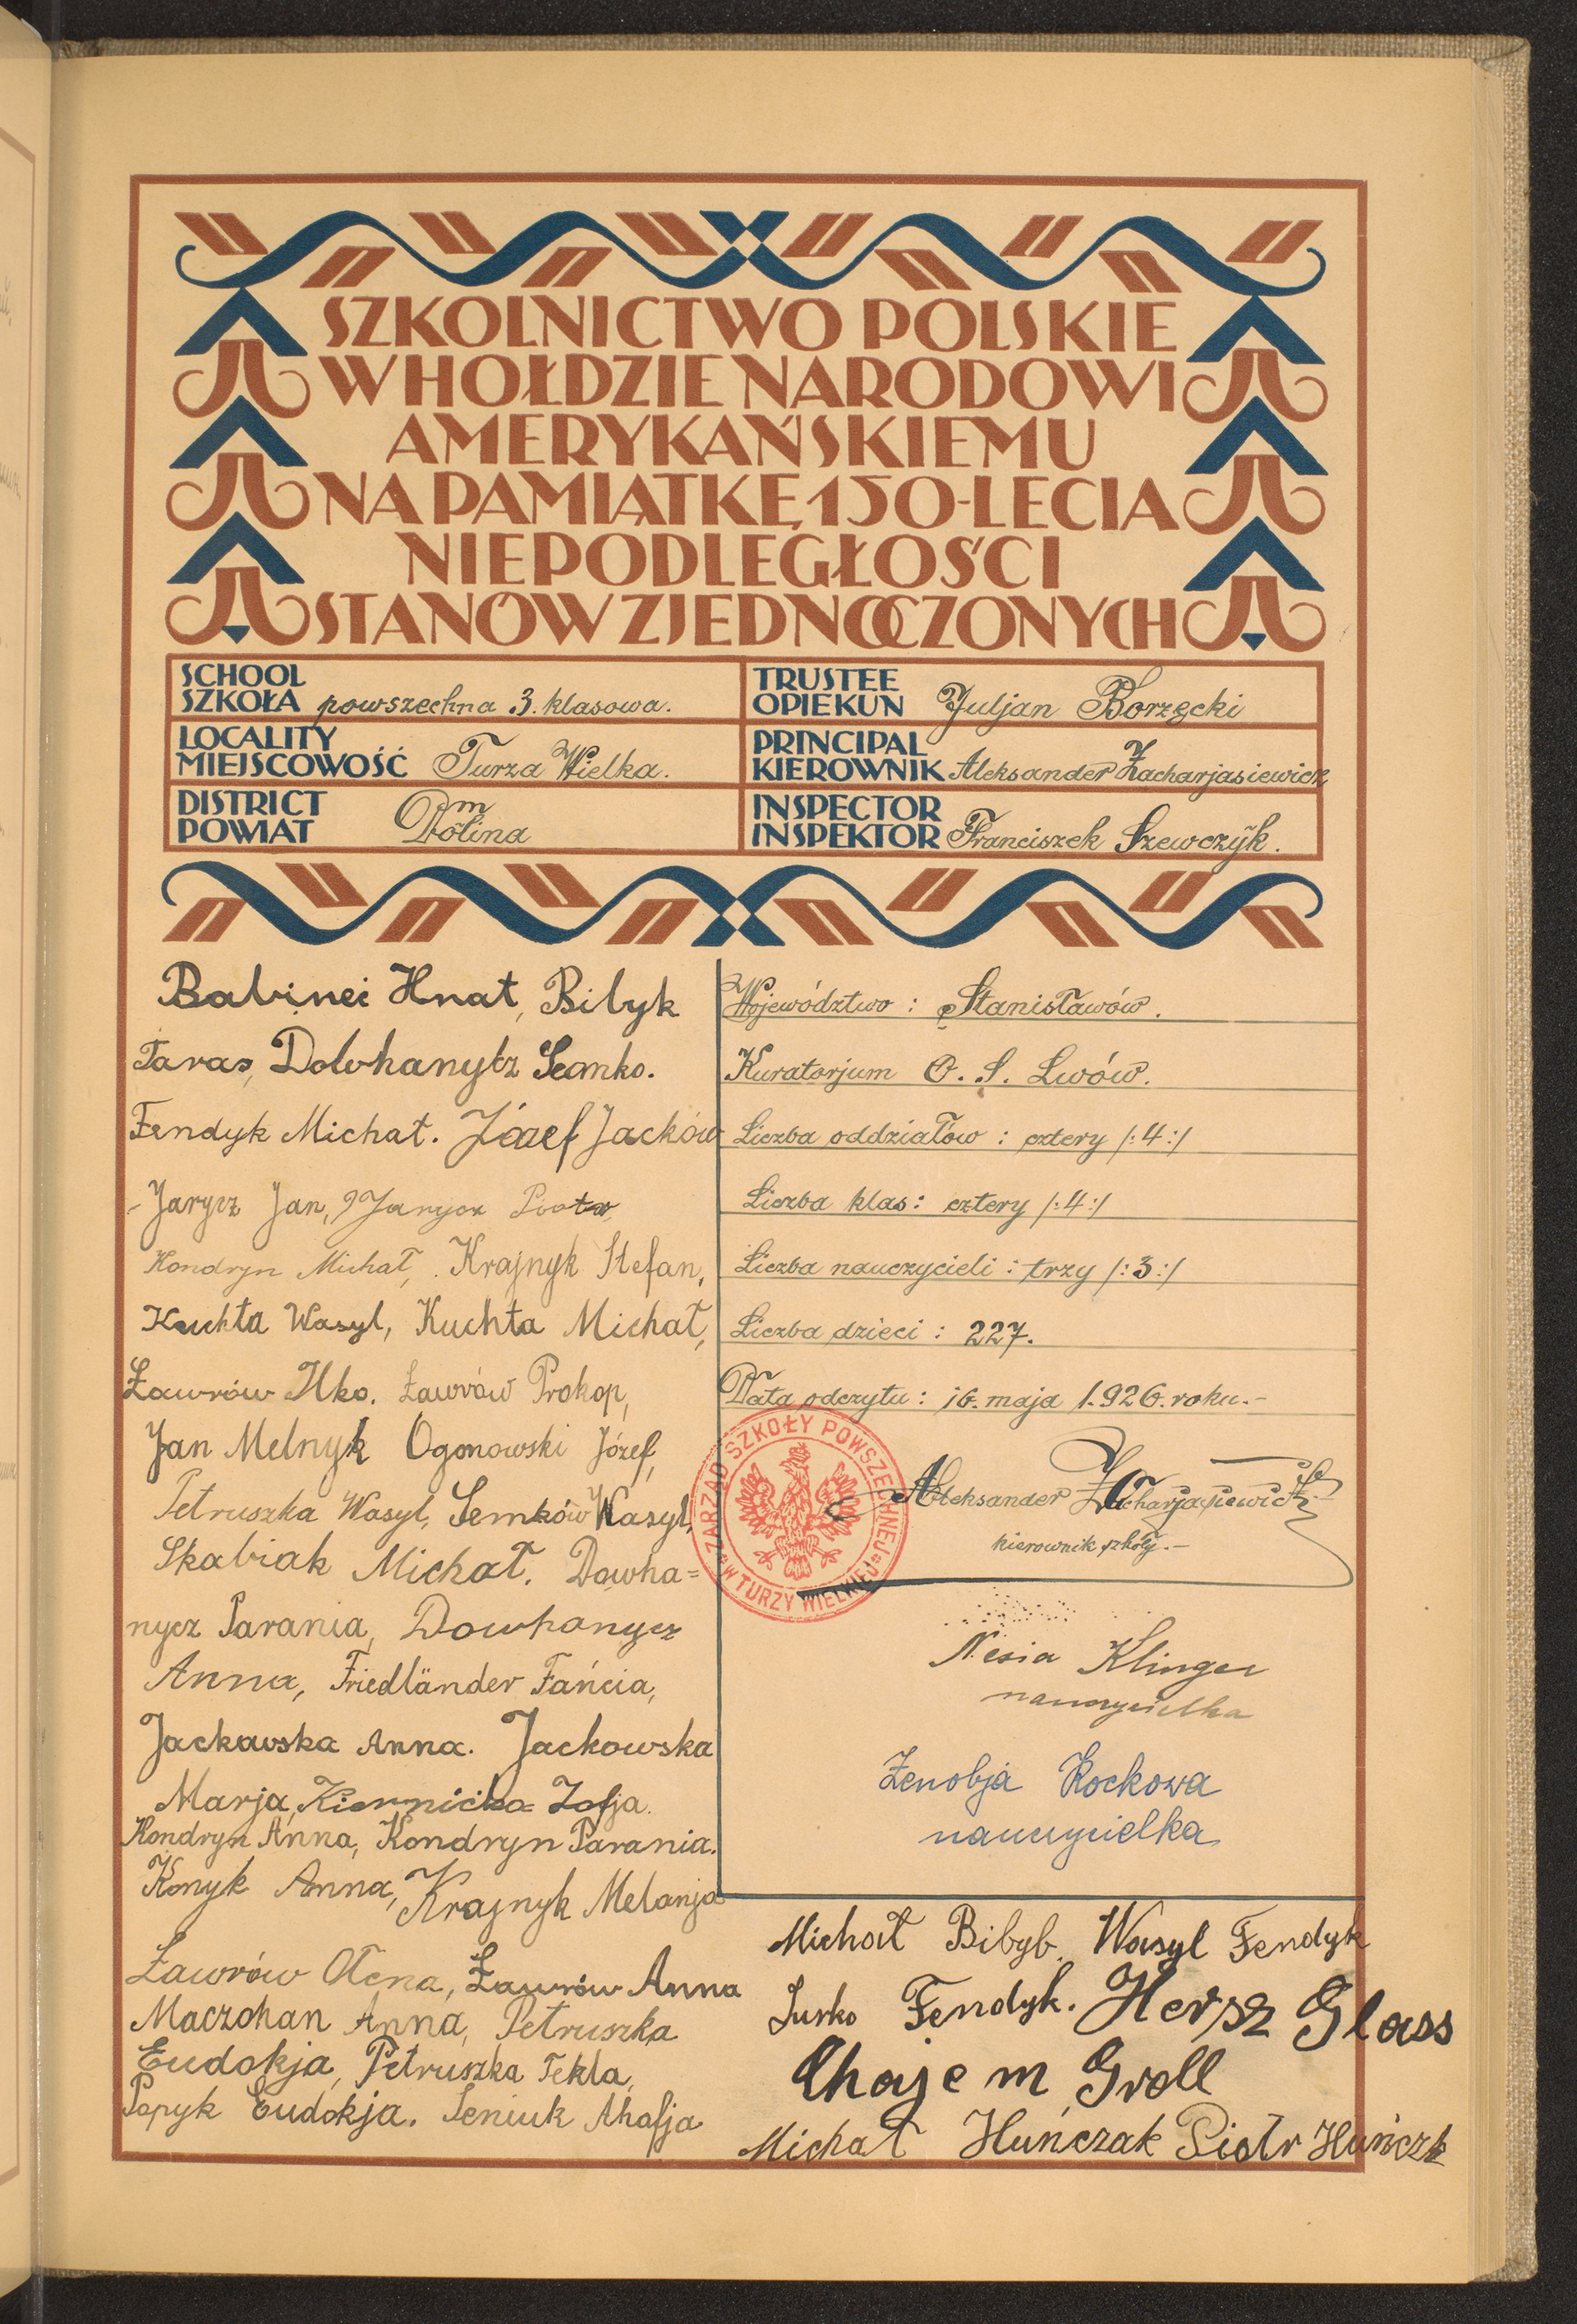 SZKOLNICTWO POLSKIE
W HOŁDZIE NARODOWI
AMERYKAŃSKIEMU
NA PAMIĄTKĘ 150-LECIA
NIEPODLEGŁOŚCI
STANÓW ZJEDNOCZONYCH
SCHOOL
SZKOŁA powszechna 3. klasowa.
LOCALITY
MIEJSCOWOŚĆ Turza Wielka.
DISTRICT
POWIAT Dolina
TRUSTEE
OPIEKUN Juljan Borzęcki
PRINCIPAL
KIEROWNIK Aleksander Zacharjasiewicz
INSPECTOR
INSPEKTOR Franciszek Szewczyk.
Babinei Hnat, Bilyk
Taras, Dowhanycz Semko.
Fendyk Michat. Józef Jacków
Jarycz Jan, Jarycz Piotr,
Kondryn Michał, Krajnyk Stefan,
Kuchta Wasyl, Kuchta Michał,
Ławrów Ilko. Ławrów Prokop,
Jan Melnyk Ogonowski Józef,
Petruszka Wasyl, Semków Wasyl,
Skabiak Michał. Dowha=
nycz Parania, Dowhanycz
Anna, Friedländer Fańcia,
Jackowska Anna. Jackowska
Marja, Kiernicka Zofja.
Kondryn Anna, Kondryn Parania.
Konyk Anna, Krajnyk Melanja
Ławrów Ołena, Ławrów Anna
Maczohan Anna, Petruszka
Eudokja, Petruszka Tekla,
Popyk Eudokja. Seniuk Ahafja
Województwo : Stanisławów.
Kuratorjum O. S. Lwów.
Liczba oddziałów : cztery /:4:/
Liczba klas : cztery /:4:/
Liczba nauczycieli : trzy /:3:/
Liczba dzieci : 227.
Data odczytu : 16. maja 1.926. roku.-
ZARZĄD SZKOŁY POWSZECHNEJ
W TURZY WIELKIEJ
Aleksander Zacharjasiewicz
kierownik szkoły.-
Nesia Klinger
nauczycielka
Zenobja Kockowa
nauczycielka
Michał Bibyb, Wasyl Fendyk
Jurko Fendyk. Hersz Glass
Chajem Groll
Michał Huńczak Piotr Huńczk